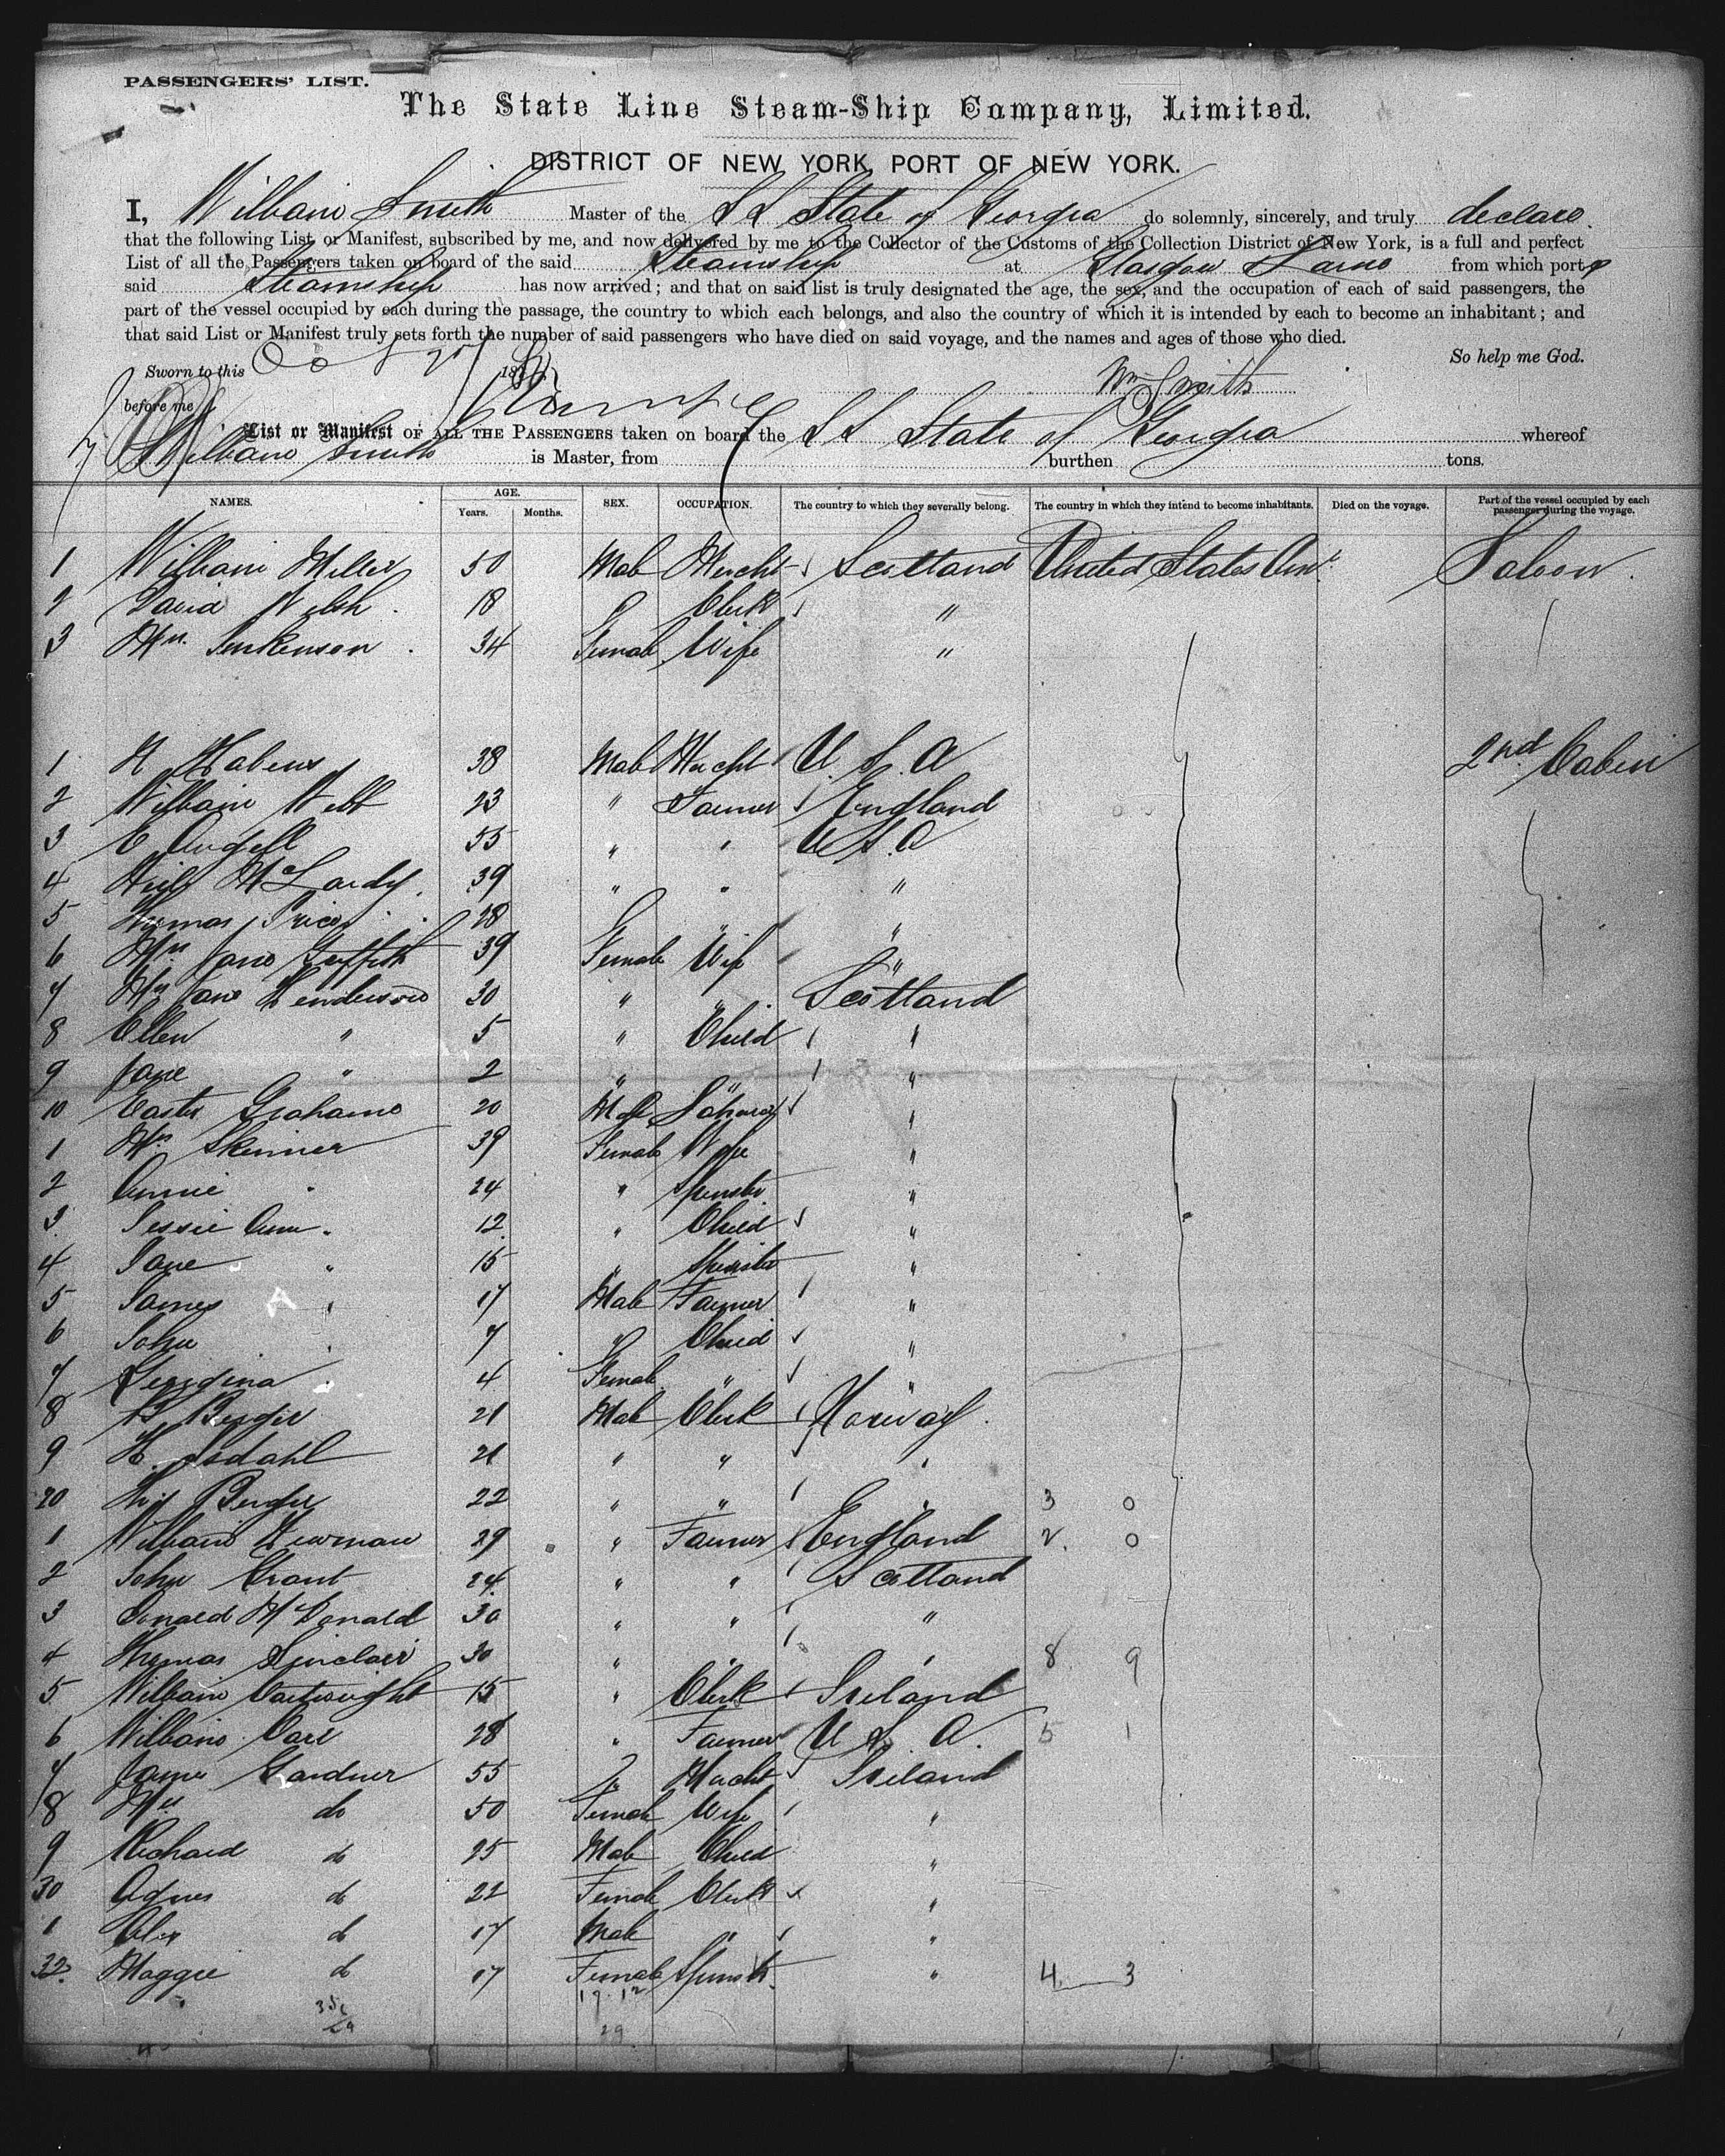 PASSENGERS' LIST.
The State Line Steam-Ship Company, Limited.
DISTRICT OF NEW YORK, PORT OF NEW YORK.
I, William Smith Master of the SS State of Georgia do solemnly, sincerely, and truly declare
that the following List or Manifest, subscribed by me, and now delivered by me to the Collector of the Customs of the Collection District of New York, is a full and perfect
List of all the Passengers taken on board of the said Steamship at Glasgow & Larne from which port
said Steamship has now arrived; and that on said list is truly designated the age, the sex, and the occupation of each of said passengers, the
part of the vessel occupied by each during the passage, the country to which each belongs, and also the country of which it is intended by each to become an inhabitant; and
that said List or Manifest truly sets forth the number of said passengers who have died on said voyage, and the names and ages of those who died.
So help me God.
Sworn to this Oct 27 18
Wm Smith
before me
List or Manifest OF ALL THE PASSENGERS taken on board the SS State of Georgia whereof
William Smith is Master, from burthen tons.
NAMES. AGE. Years. Months. SEX. OCCUPATION. The country to which they severally belong. The country in which they intend to become inhabitants. Died on the voyage. Part of the vessel occupied by each passenger during the voyage.
1 William Miller 50 Male Mercht Scotland United States Am. Saloon.
2 David Welsh 18 " Clerk "
3 Mrs. Jenkenson 34 Female Wife "
1 38 Male Mercht U.S.A 2nd Cabin
2 William Webb 23 " Farmer England
3 E Angell 55 " " U.S.A
4 Neil McLardy 39 " " "
5 Thomas Price 28 " "
6 Mrs Jane Griffith 39 Female Wife "
7 Mrs Jane Henderson 30 " " Scotland
8 Ellen " 5 " Child "
9 Jane " 2 " " "
10 Grahame 20 Male "
1 Mrs Skinner 39 Female Wife "
2 Annie " 24 " Spinster "
3 Jessie Ann " 12 " Child "
4 Jane " 15 " Spinster "
5 James " 17 Male Farmer "
6 John " 7 " Child "
7 Georgina " 4 Female " "
8 B. Berger 21 Male Clerk Norway
9 H. Isdahl 21 " " "
20 Berger 22 " " " 3 0
1 William Newman 29 " Farmer England 2. 0
2 John Grant 24 " " Scotland
3 Donald McDonald 30 " " "
4 Thomas Sinclair 30 " " " 8. 9
5 William Cartwright 15 " Clerk Ireland
6 William Carr 28 " Farmer U S A. 5 1
7 James Gardner 55 " Mercht Ireland
8 Mrs do 50 Female Wife "
9 Richard do 25 Male Child "
30 Agnes do 22 Female Clerk "
1 Alex do 17 Male " "
32. Maggie do 17 Female Spinster " 4 3
17.12
29